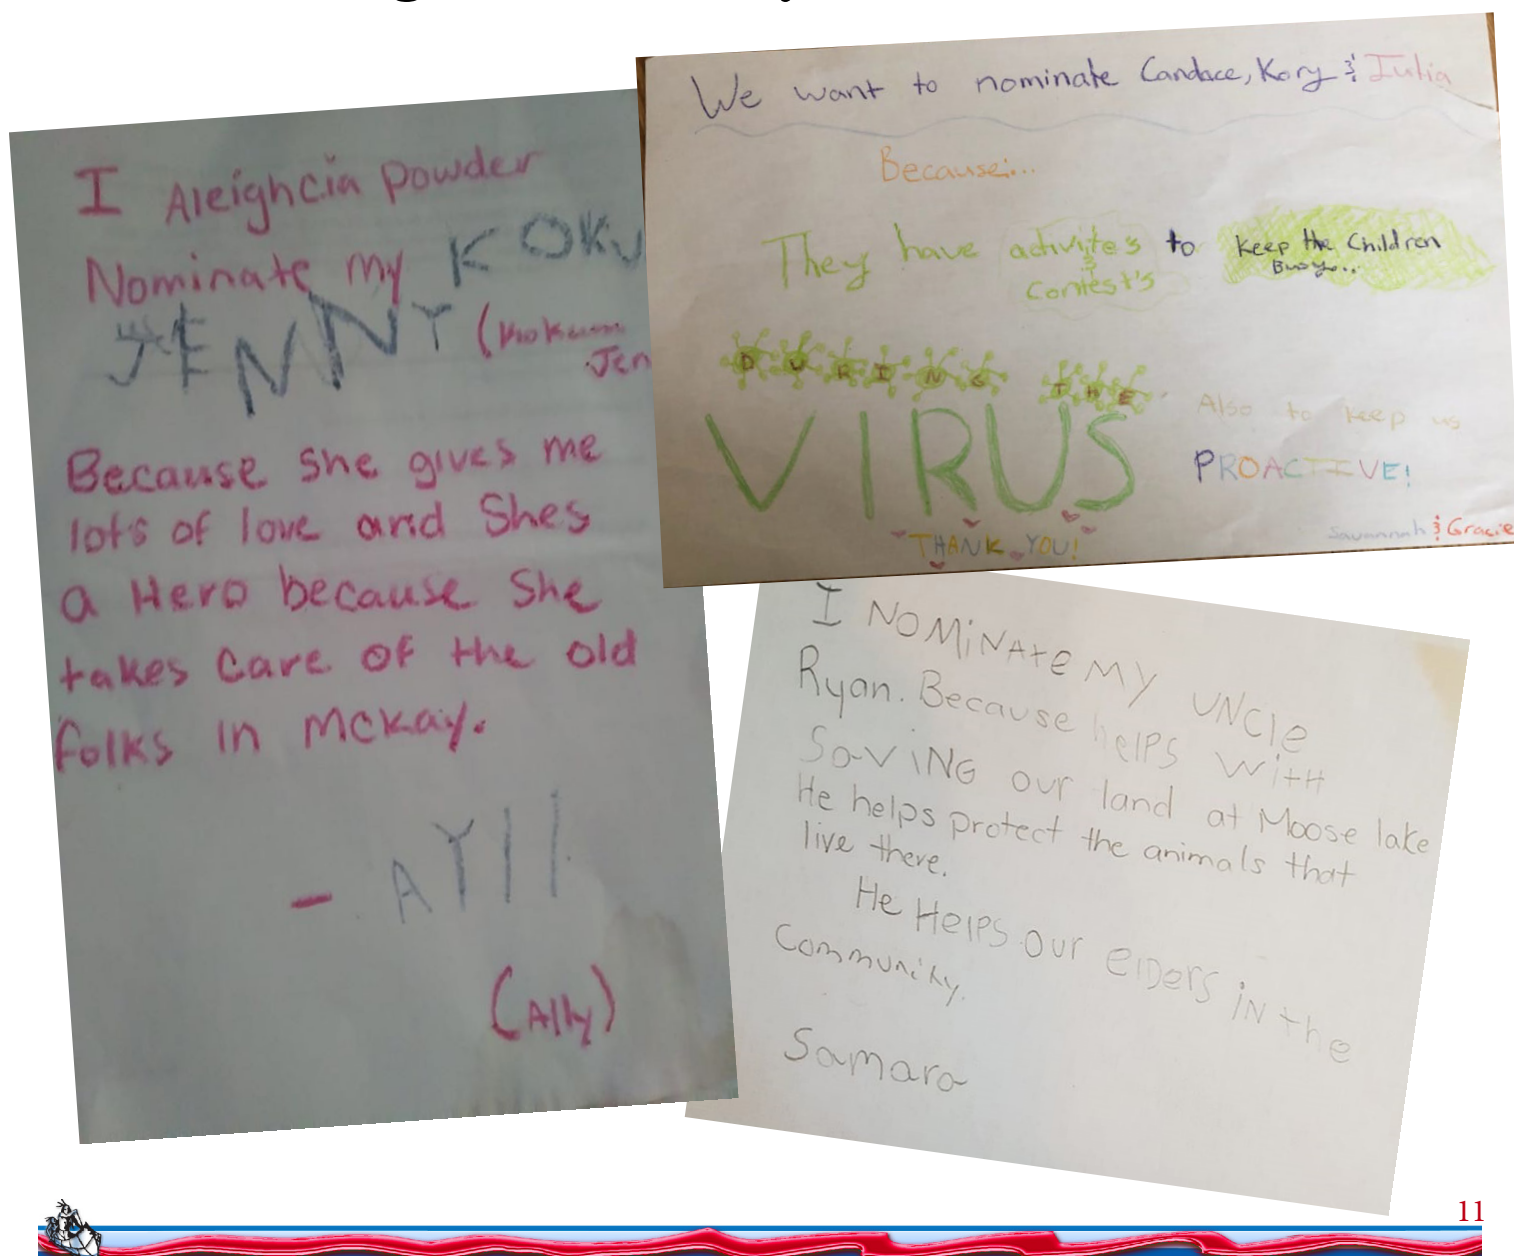 I Aleighcia Powder
Nominate my KOKU
JENNY (Kokum
Jen
Because She gives me
lots of love and Shes
a Hero because She
takes Care of the old
folks in Mckay.
- AYll
(Ally)
We want to nominate Candace, Kory & Julia
Because...
They have activite's to Keep the Children
& Busy...
Contest's
DURING THE
VIRUS
Also to keep us
PROACTIVE!
THANK YOU!
Savannah & Gracie
I NOMiNAte MY UNCle
Ryan. Because helps With
SaviNG our land at Moose lake
He helps protect the animals that
live there.
He HelPS our elDers iN the
Community.
Samara
11